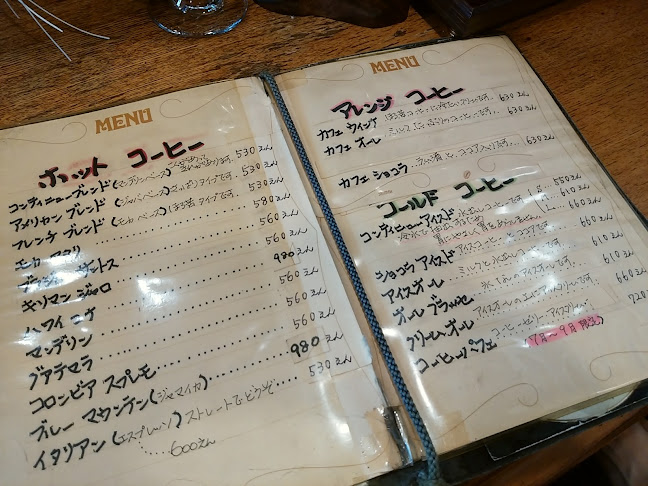 MENU
ホット コーヒー
コンティニューブレンド(マンデリンベース) 530えん
アメリカン ブレンド (ジャバベース)さっぱりタイプです。 530えん
フレンチ ブレンド (モカベース)ほろ苦タイプです。 530えん
モカ マタリ 580えん
ブラジル サントス 560えん
キリマンジャロ 560えん
ハワイ コナ 980えん
マンデリン 560えん
グアテマラ 560えん
コロンビア スプレモ 560えん
ブルー マウンテン(ジャマイカ) 980えん
イタリアン (エスプレッソ) ストレートでどうぞ 530えん
600えん
MENU
アレンジ コーヒー
カフェ ウィンナ 630えん
カフェ オーレ ミルクたっぷりのコーヒーです。 630えん
カフェ ショコラ ココア入りです。 630えん
コールド コーヒー
コンティニューアイスド 550えん
ショコラ アイスド アイスコーヒーとココアです。 660えん
アイスオーレ 610えん
オーレ グラッセ 610えん
クリームオーレ 660えん
コーヒーパフェ コーヒーゼリー・アイスクリーム 720
(7月〜9月限定)